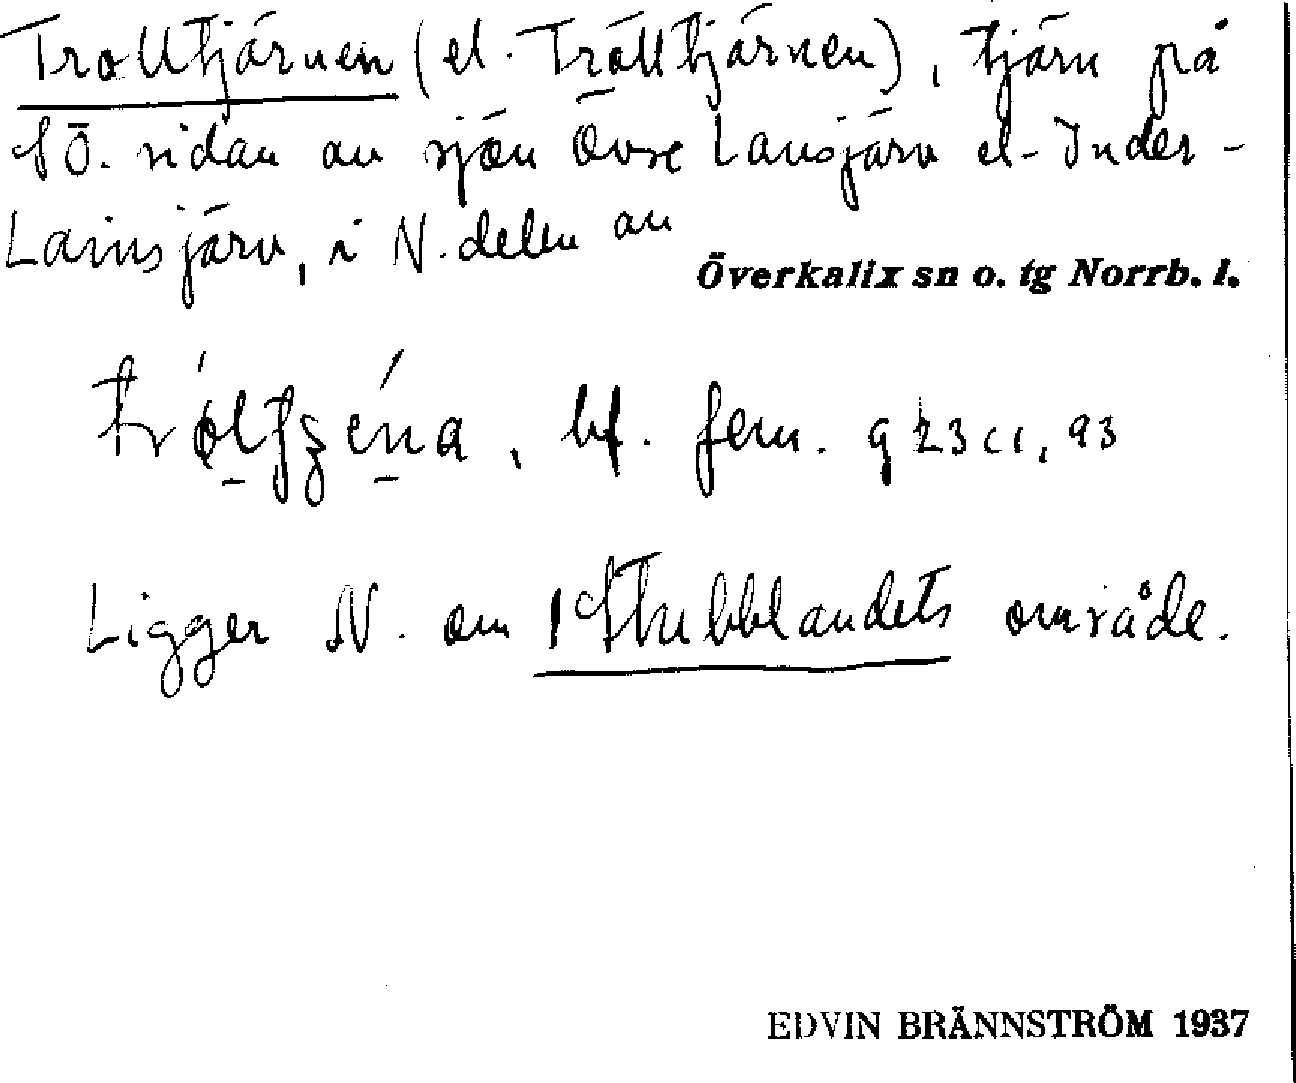 Trolltjärnen (el. Trålltjärnen), tjärn på
SÖ. sidan av sjön Övre Lansjärv el. Inder-
Lainsjärv, i N. delen av
Överkalix sn o. tg Norrb. l.
bf. fem.
Ligger N. om Stubblandets område.
EDVIN BRÄNNSTRÖM 1937